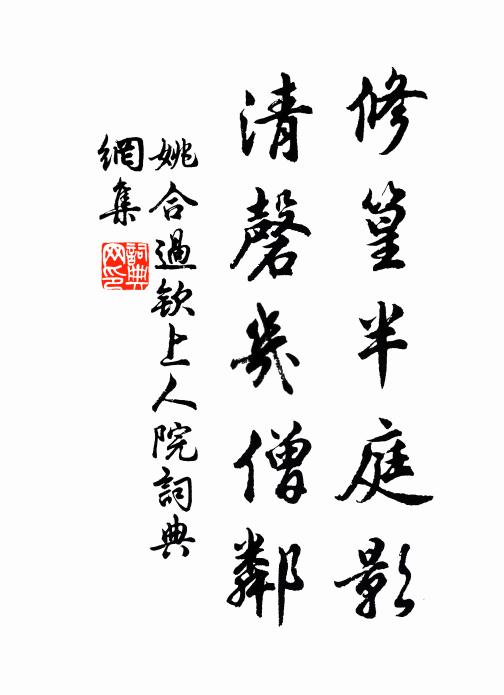 修篁半庭影
清磬幾僧鄰
姚合過欽上人院詞典
網集
詞典网印